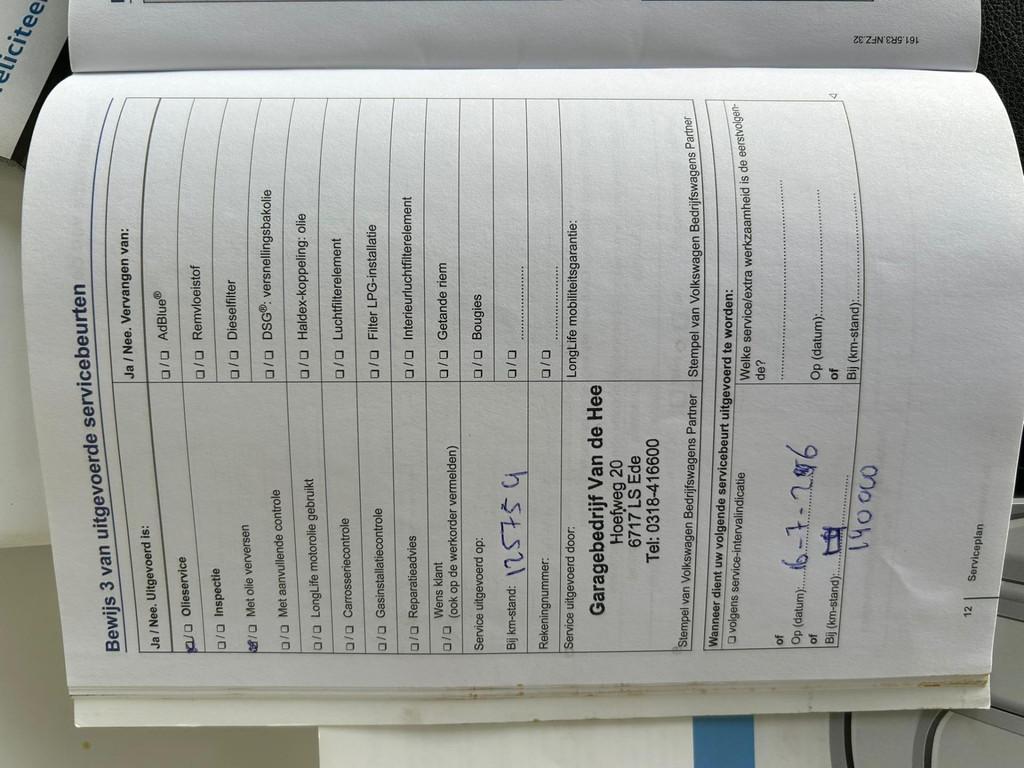 eliciteer
161.5R3.NFZ.32
Bewijs 3 van uitgevoerde servicebeurten
Ja / Nee. Uitgevoerd is:
/ Olieservice
/ Inspectie
/ Met olie verversen
/ Met aanvullende controle
/ LongLife motorolie gebruikt
/ Carrosseriecontrole
/ Gasinstallatiecontrole
/ Reparatieadvies
/ Wens klant
(ook op de werkorder vermelden)
Service uitgevoerd op:
Bij km-stand: 125754
Rekeningnummer:
Service uitgevoerd door:
Garagebedrijf Van de Hee
Hoefweg 20
6717 LS Ede
Tel: 0318-416600
Stempel van Volkswagen Bedrijfswagens Partner
Ja / Nee. Vervangen van:
/ AdBlue®
/ Remvloeistof
/ Dieselfilter
/ DSG®: versnellingsbakolie
/ Haldex-koppeling: olie
/ Luchtfilterelement
/ Filter LPG-installatie
/ Interieurluchtfilterelement
/ Getande riem
/ Bougies
/ ....................
/ ....................
LongLife mobiliteitsgarantie:
Stempel van Volkswagen Bedrijfswagens Partner
Wanneer dient uw volgende servicebeurt uitgevoerd te worden:
volgens service-intervalindicatie
of
Op (datum): 16-7-
of
Bij (km-stand):
140000
Welke service/extra werkzaamheid is de eerstvolgen-
de?
Op (datum):
of
Bij (km-stand):
12 Serviceplan